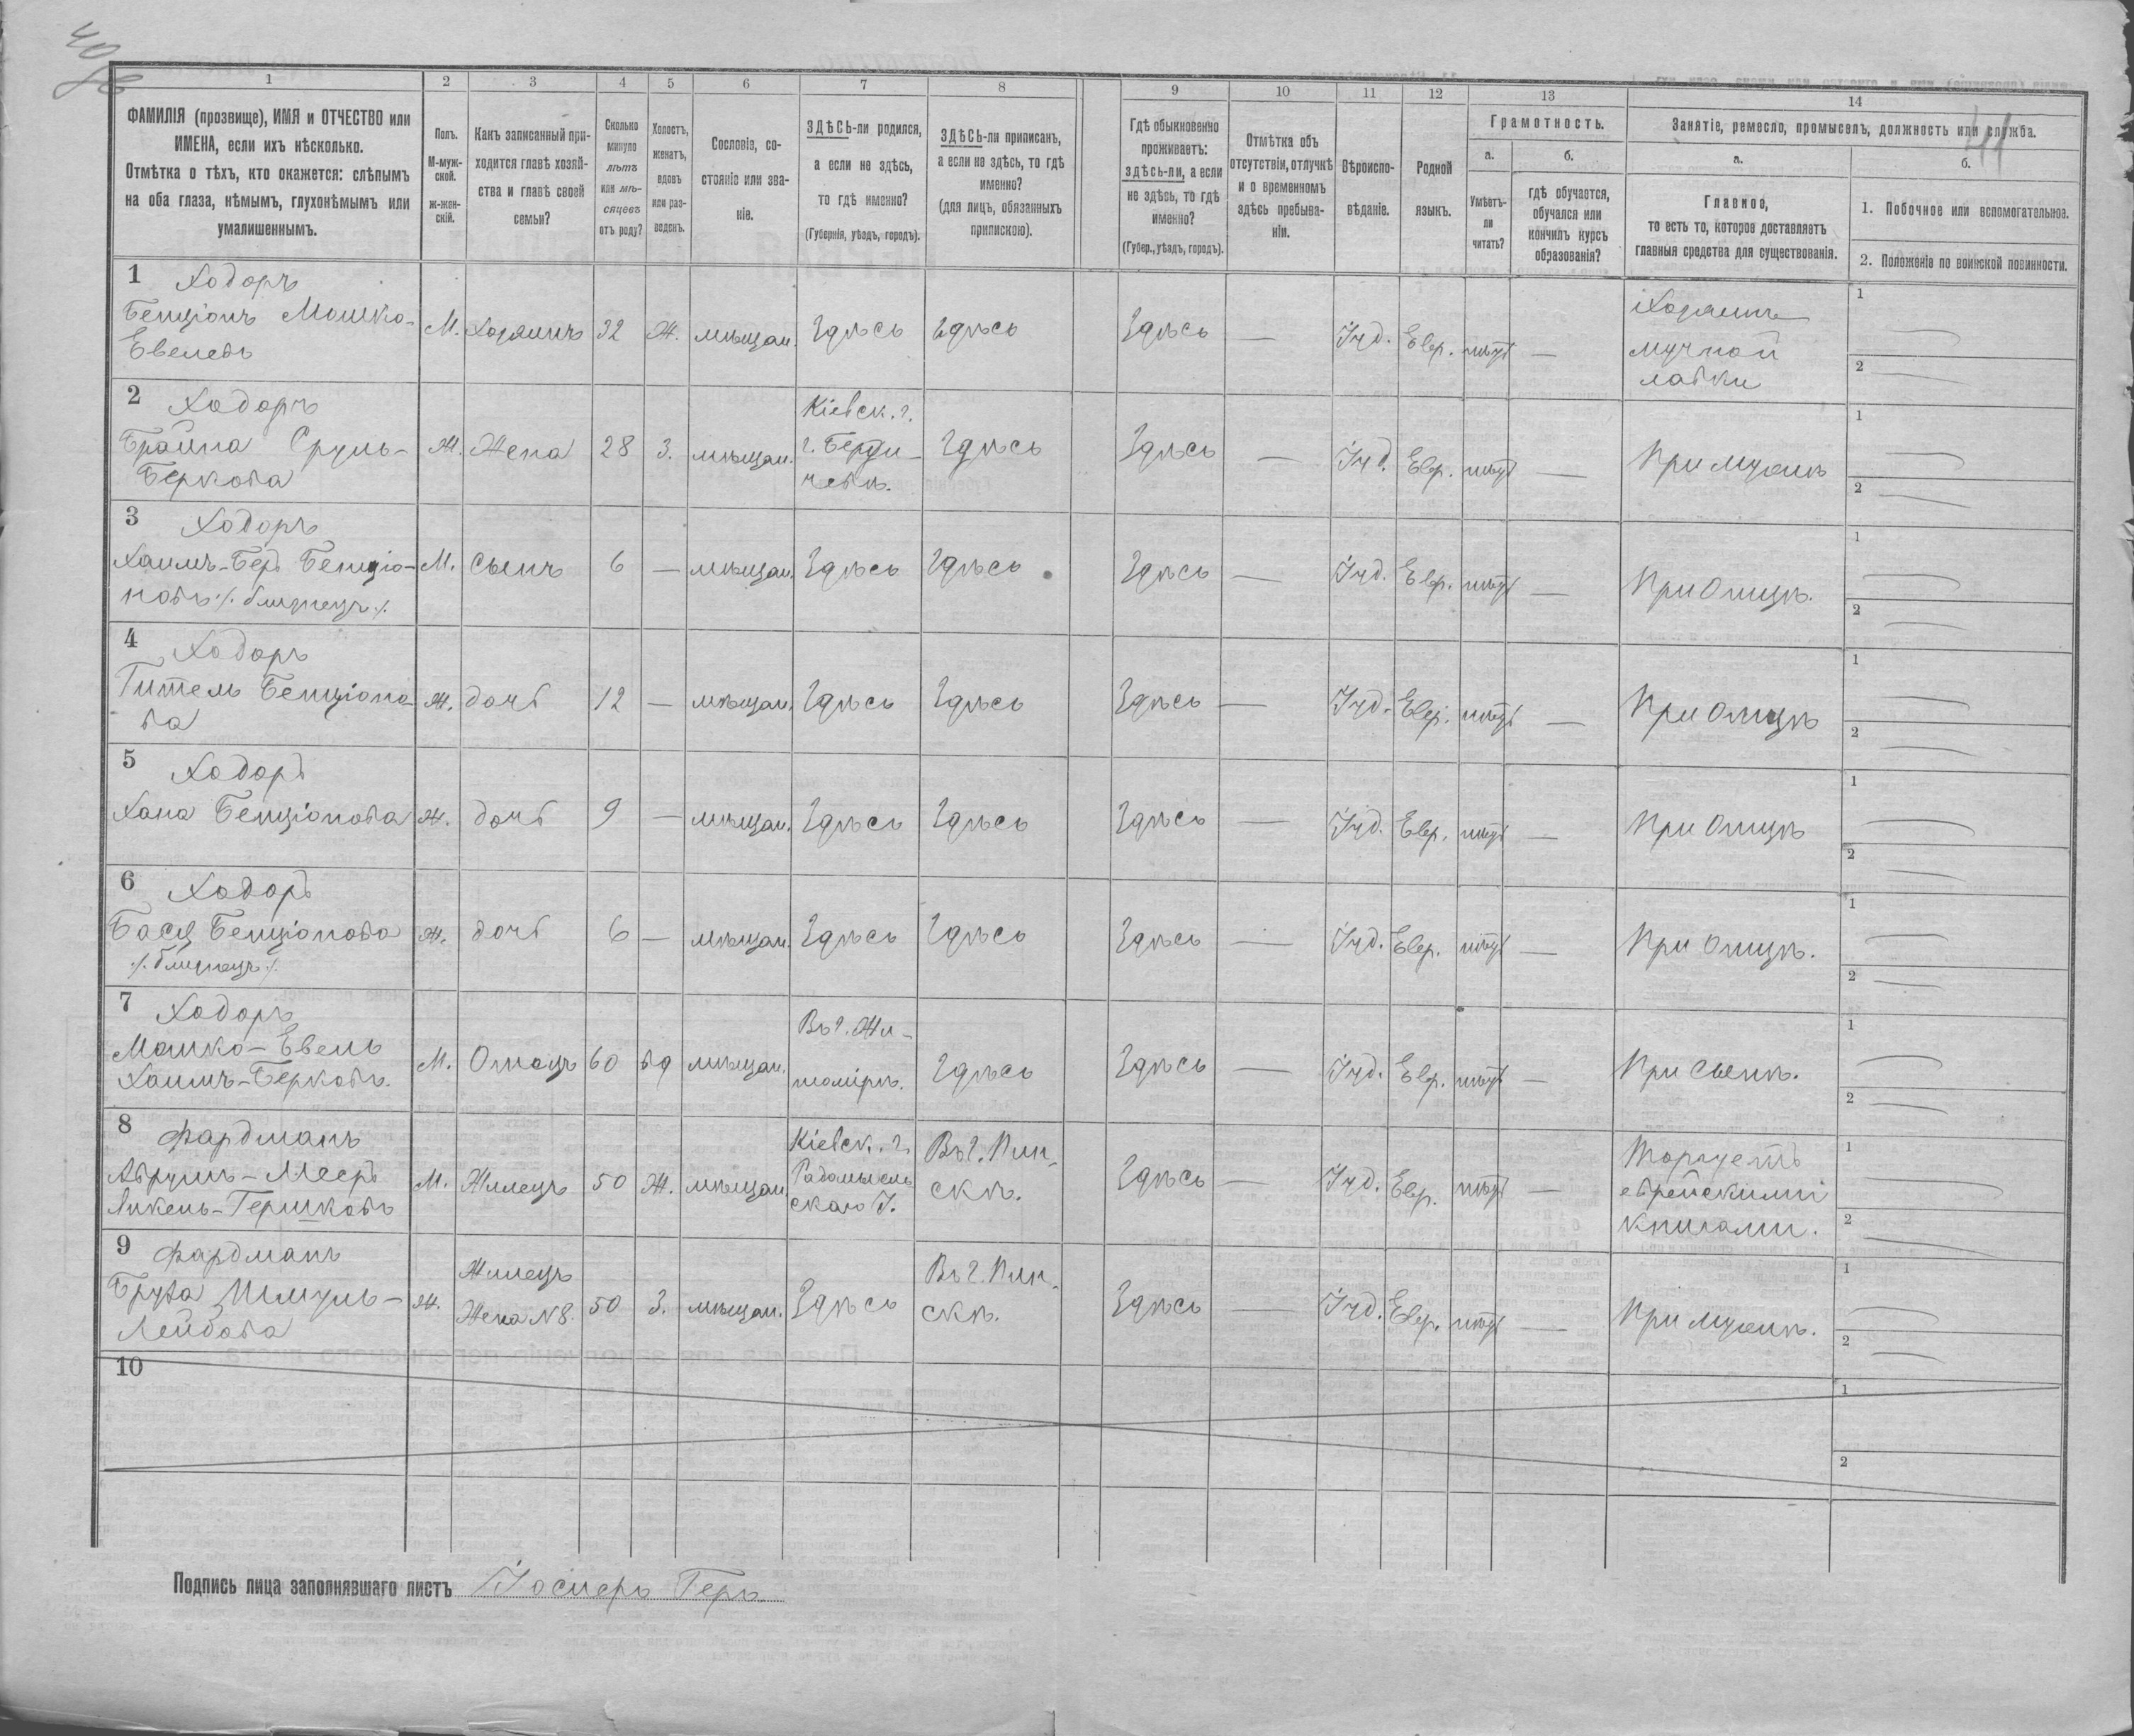 40об
41
1 2 3 4 5 6 7 8 9 10 11 12 13 14
ФАМИЛІЯ (прозвище), ИМЯ и ОТЧЕСТВО или
ИМЕНА, если ихъ нѣсколько.
Отмѣтка о тѣхъ, кто окажется: слѣпымъ
на оба глаза, нѣмымъ, глухонѣмымъ или
умалишеннымъ.
Полъ.
М-муж-
ской.
ж-жен-
скій.
Какъ записанный при-
ходится главѣ хозяй-
ства и главѣ своей
семьи?
Сколько
минуло
лѣтъ
или мѣ-
сяцевъ
отъ роду?
Холостъ,
женатъ,
вдовъ
или раз-
веденъ.
Сословіе, со-
стояніе или зва-
ніе.
ЗДѢСЬ-ли родился,
а если не здѣсь,
то гдѣ именно?
(Губернія, уѣздъ, городъ).
ЗДѢСЬ-ли приписанъ,
а если не здѣсь, то гдѣ
именно?
(для лицъ, обязанныхъ
припискою).
Гдѣ обыкновенно
проживаетъ:
здѣсь-ли, а если
не здѣсь, то гдѣ
именно?
(Губер., уѣздъ, городъ).
Отмѣтка объ
отсутствіи, отлучкѣ
и о временномъ
здѣсь пребыва-
ніи.
Вѣроиспо-
вѣданіе.
Родной
языкъ.
Грамотность.
а.
Умѣетъ-
ли
читать?
б.
гдѣ обучается,
обучался или
кончилъ курсъ
образованія?
Занятіе, ремесло, промыселъ, должность или служба.
а.
Главное,
то есть то, которое доставляетъ
главныя средства для существованія.
б.
1. Побочное или вспомогательное.
2. Положеніе по воинской повинности.
1 Ходоръ
Бенціонъ Мошко-
Евелевъ
М. Хозяинъ 32 Ж. мѣщан. Здѣсь Здѣсь Здѣсь — Іуд. Евр. нѣтъ —
Хозяинъ
мучной
лавки
1
2
2 Ходоръ
Брайна Сруль-
Беркова
Ж. Жена 28 З. мѣщан.
Кіевск. г.
г. Берди-
чевѣ.
Здѣсь Здѣсь — Іуд. Евр. нѣтъ — При мужѣ
1
2
3 Ходоръ
Хаимъ-Беръ Бенціо-
новъ ·/. близнецъ ./.
М. Сынъ 6 — мѣщан. Здѣсь Здѣсь Здѣсь — Іуд. Евр. нѣтъ — При Отцѣ.
1
2
4 Ходоръ
Гитель Бенціоно-
ва
Ж. дочь 12 — мѣщан. Здѣсь Здѣсь Здѣсь — Іуд. Евр. нѣтъ — При Отцѣ
1
2
5 Ходоръ
Хана Бенціонова Ж. дочь 9 — мѣщан. Здѣсь Здѣсь Здѣсь — Іуд. Евр. нѣтъ — При Отцѣ
1
2
6 Ходоръ
Бася Бенціонова
./. близнецъ ./.
Ж. дочь 6 — мѣщан. Здѣсь Здѣсь Здѣсь — Іуд. Евр. нѣтъ — При Отцѣ.
1
2
7 Ходоръ
Мошко-Евель
Хаимъ-Берковъ.
М. Отецъ 60 вд мѣщан.
Въ г. Жи-
томірѣ.
Здѣсь Здѣсь — Іуд. Евр. нѣтъ — При Сынѣ.
1
2
8 Фардманъ
Абрумъ-Мееръ
-Гершковъ
М. Жилецъ 50 Ж. мѣщан.
Кіевск. г.
Радомысль
скаго У.
Въ г. Пин-
скѣ.
Здѣсь — Іуд. Евр. нѣтъ —
Торгуетъ
еврейскими
книгами.
1
2
9 Фардманъ
Шмуль-
Лейбова
Ж.
Жилецъ
Жена N 8.
50 З. мѣщан. Здѣсь
Въ г. Пин-
скѣ.
Здѣсь — Іуд. Евр. нѣтъ — При мужѣ.
1
2
10
1
2
Подпись лица заполнявшаго листъ